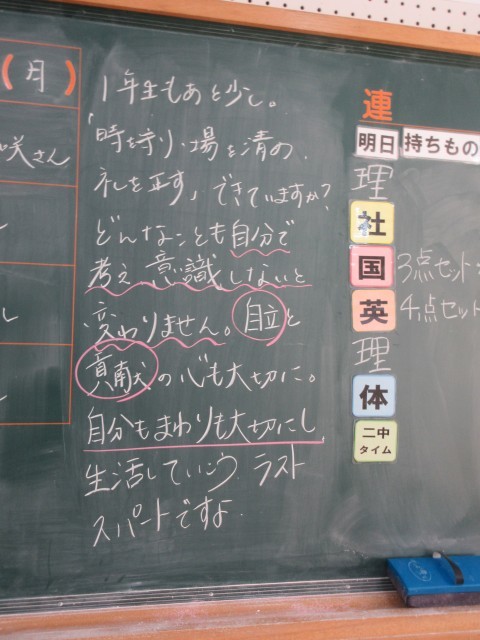 （月）
咲さん
１年生もあと少し。
「時を守り・場を清め
礼を正す」できていますか？
どんなことも自分で
考え、意識しないと
変わりません。自立と
貢献の心も大切に。
自分もまわりも大切にし
生活していこう ラスト
スパートですよ。
連
明日 持ちもの
理
社
国 3点セット
英 4点セット
理
体
二中
タイム